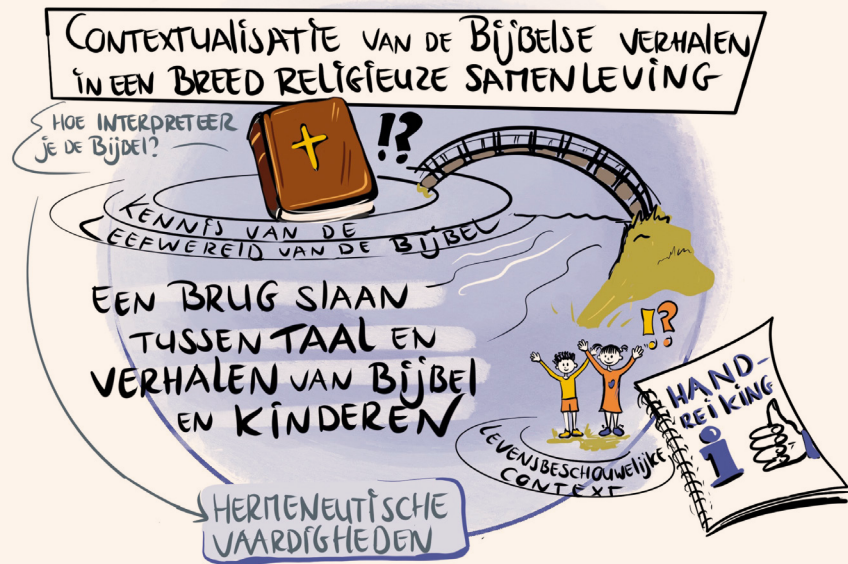 CONTEXTUALISATIE VAN DE BIJBELSE VERHALEN
IN EEN BREED RELIGIEUZE SAMENLEVING
HOE INTERPRETEER
JE DE BIJBEL?
!?
KENNIS VAN DE
LEEFWERELD VAN DE BIJBEL
EEN BRUG SLAAN
TUSSEN TAAL EN
VERHALEN VAN BIJBEL
EN KINDEREN
!?
HAND-
REIKING
i
LEVENSBESCHOUWELIJKE
CONTEXT
HERMENEUTISCHE
VAARDIGHEDEN